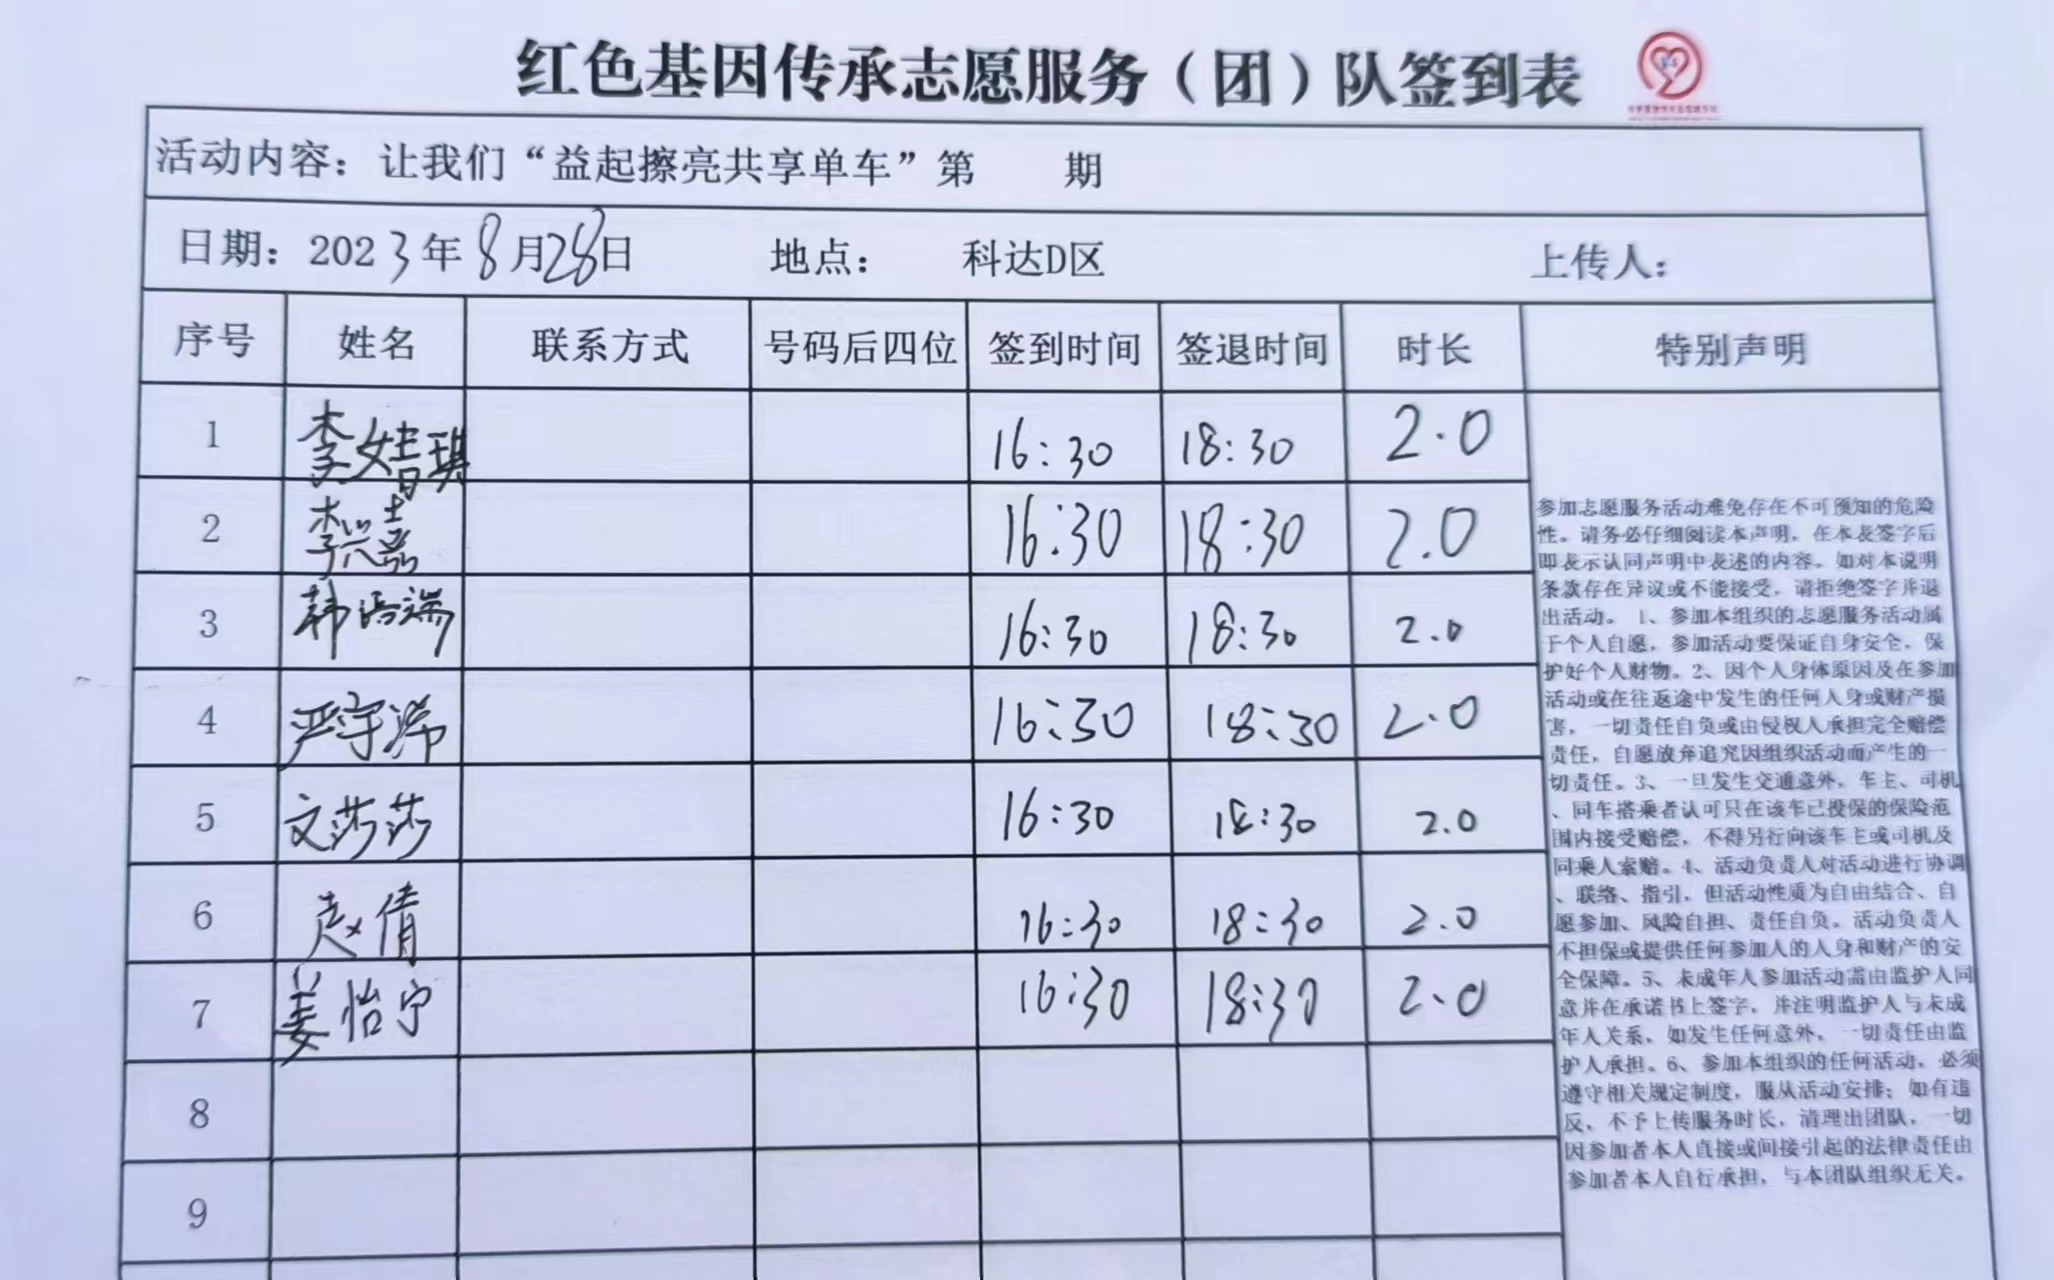 红色基因传承志愿服务（团）队签到表
活动内容：让我们“益起擦亮共享单车”第 期
日期：2023年8月28日 地点： 科达D区 上传人：
序号 姓名 联系方式 号码后四位 签到时间 签退时间 时长 特别声明
1 李婧琪 16:30 18:30 2.0
2 李兴嘉 16:30 18:30 2.0
3 韩端 16:30 18:30 2.0
4 严守 16:30 18:30 2.0
5 文莎莎 16:30 18:30 2.0
6 赵倩 16:30 18:30 2.0
7 姜怡宁 16:30 18:30 2.0
8
9
参加志愿服务活动难免存在不可预知的危险
性。请务必仔细阅读本声明，在本表签字后
即表示认同声明中表述的内容。如对本说明
条款存在异议或不能接受，请拒绝签字并退
出活动。 1、参加本组织的志愿服务活动属
于个人自愿，参加活动要保证自身安全，保
护好个人财物。2、因个人身体原因及在参加
活动或在往返途中发生的任何人身或财产损
害，一切责任自负或由侵权人承担完全赔偿
责任，自愿放弃追究因组织活动而产生的一
切责任。3、一旦发生交通意外，车主、司机
、同车搭乘者认可只在该车已投保的保险范
围内接受赔偿，不得另行向该车主或司机及
同乘人索赔。4、活动负责人对活动进行协调
、联络、指引，但活动性质为自由结合、自
愿参加、风险自担、责任自负。活动负责人
不担保或提供任何参加人的人身和财产的安
全保障。5、未成年人参加活动需由监护人同
意并在承诺书上签字，并注明监护人与未成
年人关系，如发生任何意外，一切责任由监
护人承担。6、参加本组织的任何活动，必须
遵守相关规定制度，服从活动安排；如有违
反，不予上传服务时长，清理出团队，一切
因参加者本人直接或间接引起的法律责任由
参加者本人自行承担，与本团队组织无关。